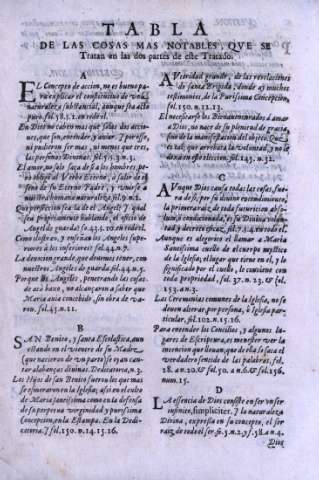 TABLA
DE LAS COSAS MAS NOTABLES, QUE SE
Tratan en las dos partes de este Tratado.
A
EL Concepto de accion, no es bueno para
explicar el constitutivo de una
naturaleza substancial, aunque sea acto
puro. fol. 58. s. 2. en todo èl.
En Dios no caben mas que solas dos acciones,
que son, entender, y amar. I persas,
ni pudieron ser mas, ni menos que tres,
las personas Divinas. fol. 55. s. 3. n. 3.
seno de su Eterno Padre, y unirse à
nuestra humana naturaleza. fol.
Que perfeccion sea la de el Angel? I qual
sea propriamente hablando, el oficio de
Angel de guarda. fol. 43. s. 10. en todo èl.
Como ilustran, y enseñan los Angeles superiores
à los inferiores. fol. 44. n. 9.
La devocion grande, que devemos tener, con
nuestros Angeles de guarda. fol. 44. n. 5.
Porque los Angeles, penetrando las cosas
de acà baxo, no alcançaron à saber que
Maria avia concebido, sin obra de varon.
fol. 45. n. 11.
B
SAN Benito, y santa Escolastica, aun
estando en el vientre de su Madre,
(que nacieron de un parto) se oyan cantar
alabanças divinas. Dedicatoria, n. 3.
Los Hijos de San Benito fueron los que mas
se esmeraron en la Iglesia; assi en el culto
de Maria santissima como en la defensa
de su perpetua virginidad y purissima
Concepcion, en la Estampa. En la Dedicatoria.
I fol. 150. n. 14. 15. 16.
AUtoridad grande, de las revelaciones
de santa Brigida, donde ay muchos
testimonios, de la Purissima Concepcion,
fol. 150. n. 12. 13.
El necessitar los Bienaventurados à amar
à Dios, no nace de su plenitud de gracia,
sino de la manifestacion del objeto. Que es
tal; que arrebata la voluntad, y no le
dà eleccion. fol. 143. n. 32.
C
AUnque Dios causa todas las cosas, fuera
de si, por su divino entendimiento,
la primera raiz, de toda su causacion absoluta,
ò condicionada, es su Divina voluntad
y decreto eficaz. fol. 74. 4. en todo èl.
Aunque es alegorico el llamar à Maria
Santissima cuello de el cuerpo mystico
de la Iglesia; el lugar que tiene en el, y lo
significado por el cuello, le conviene con
toda propriedad. fol. 37. n. 23. & fol.
153. n. 3.
Las Ceremonias comunes de la Iglesia, no se
deven alterar, por persona, ò Iglesia particular,
fol. 102. n. 15. 16.
Para entender los Concilios, y algunos lugares
de Escriptura, es menester ver la
intencion que llevan, que de ella se saca el
verdadero sentido de las palabras, fol.
28. an. 20. & fol. 50. an. 6. & fol. 156.
num. 15.
D
LA essencia de Dios consiste en ser Uniu
simpliciter. I la naturaleza
Divina, expresa en su concepto, el ser
raiz de todo el ser. fol. 5. n. 2. y fol. 58. n. 4.
Dios